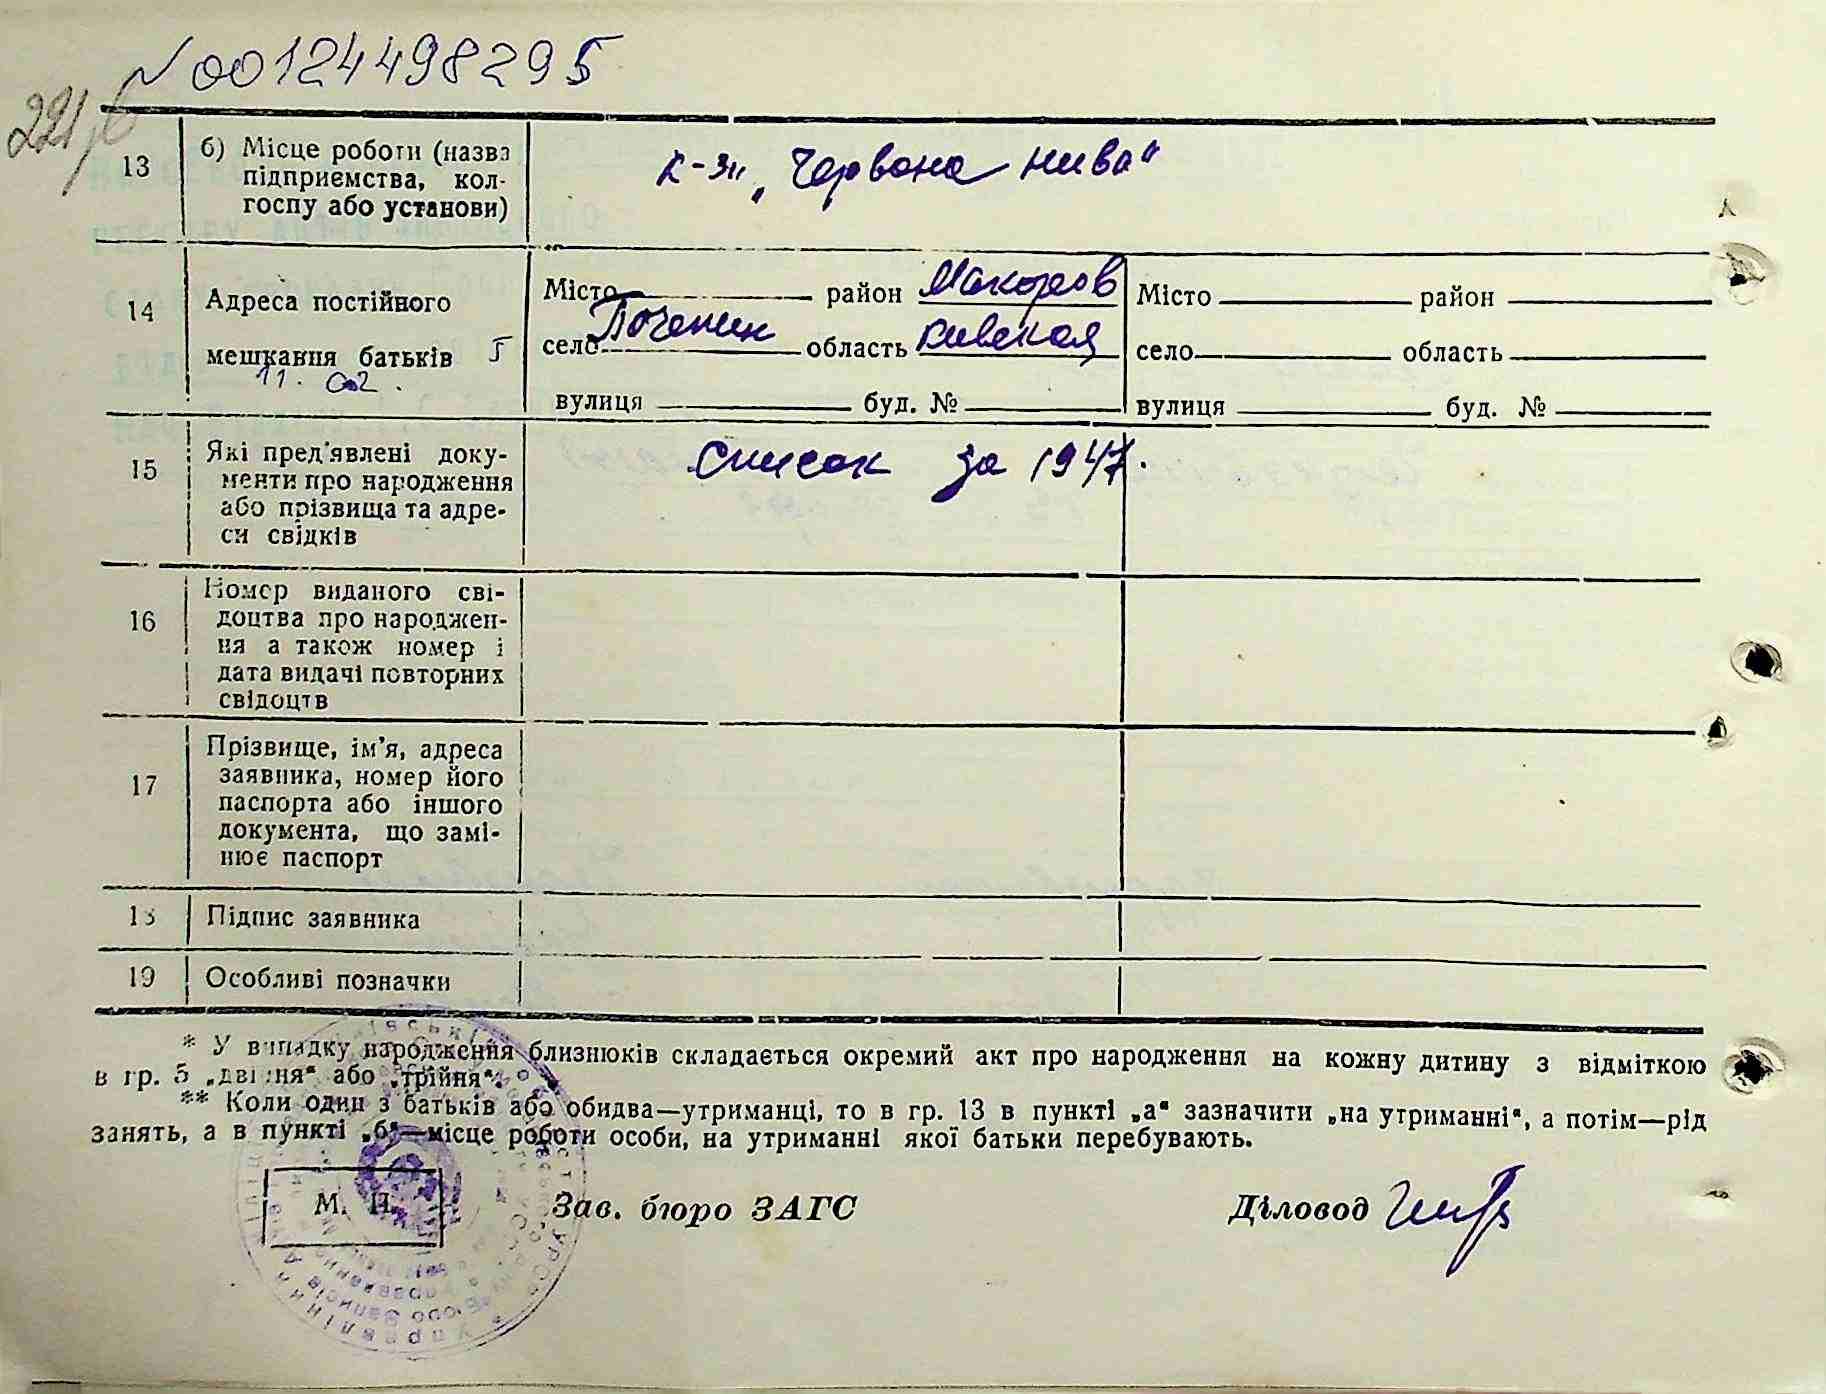 N 00124498295
221/6
13 б) Місце роботи (назва
підприємства, кол-
госпу або установи)
к-зп „Червона нива“
14 Адреса постійного
мешкання батьків
Місто район Макаров
село область Киевская
вулиця буд. №
Місто район
село область
вулиця буд. №
15 Які пред'явлені доку-
менти про народження
або прізвища та адре-
си свідків
список за 1947.
16 Номер виданого сві-
доцтва про народжен-
ня а також номер і
дата видачі повторних
свідоцтв
17 Прізвище, ім'я, адреса
заявника, номер його
паспорта або іншого
документа, що замі-
нює паспорт
18 Підпис заявника
19 Особливі позначки
* У випадку народження близнюків складається окремий акт про народження на кожну дитину з відміткою
в гр. 5 „двійня“ або „трійня“.
** Коли один з батьків або обидва—утриманці, то в гр. 13 в пункті „а“ зазначити „на утриманні“, а потім—рід
занять, а в пункті „б“—місце роботи особи, на утриманні якої батьки перебувають.
М. П.
Зав. бюро ЗАГС
Діловод